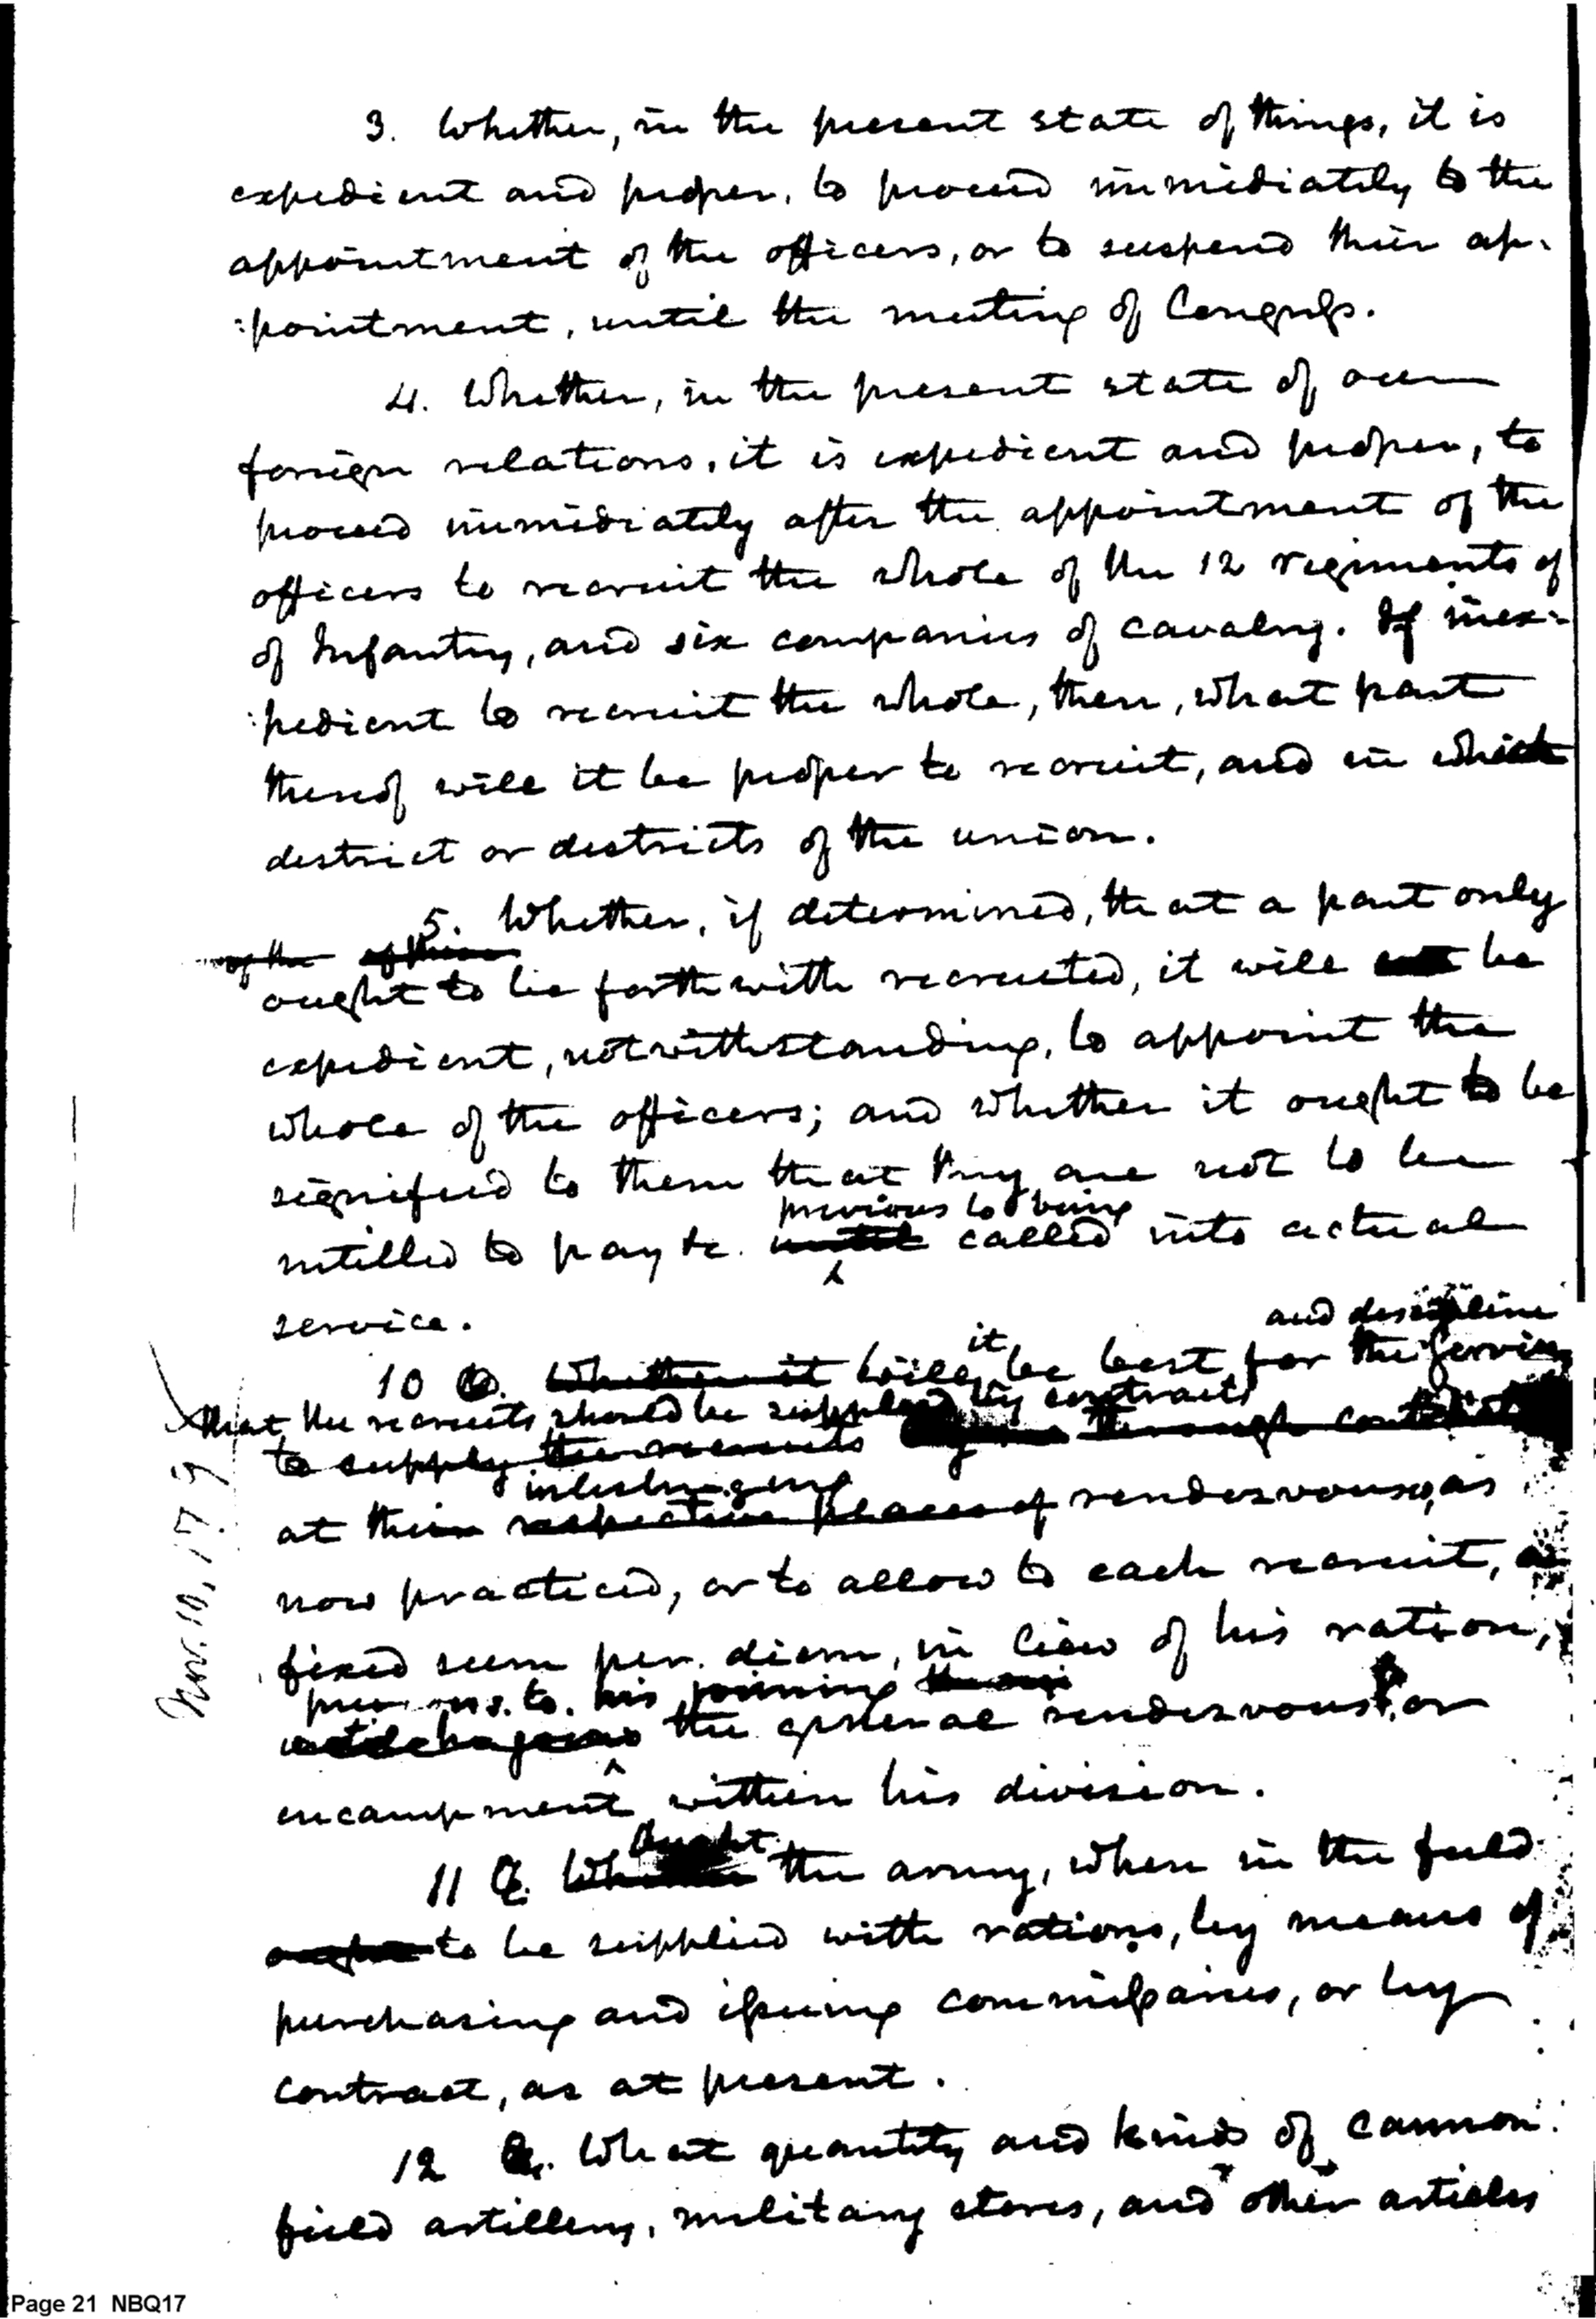 3. Whether, in the present state of things, it is
expedient and proper, to proceed immediately to the
appointment of the officers, or to suspend their ap-
:pointment, until the meeting of Congress.
4. Whether, in the present state of our
foreign relations, it is expedient and proper, to
proceed immediately after the appointment of the
officers to recruit the whole of the 12 regiments of
of Infantry, and six companies of cavalry. If inex:
:pedient to recruit the whole, then, what part
thereof will it be proper to recruit, and in which
district or districts of the union.
5. Whether, if determined, that a part only
of the of these
ought to be forthwith recruited, it will be
expedient, notwithstanding, to appoint the
whole of the officers; and whether it ought to be
signified to them that they are not to be
previous to being
intitled to pay &c. until called into actual
service.
and discipline
it
10 Q. Whether it Will be best for the service
that the recruits should be supplied by contract
to supply the recruits through contracts
at their respective places of rendezvouses, as
now practiced, or to allow to each recruit, a
fixed sum per. diem, in lieu of his ration,
previous. to. his joining
the general rendezvous, or
encampment within his division.
Ought
11 Q. the army, when in the field
ought to be supplied with rations, by means of
purchasing and issuing commissaries, or by
contract, as at present.
12 Q. What quantity and kinds of cannon
field artillery, military stores, and other articles
Nov. 10, 179
Page 21 NBQ17